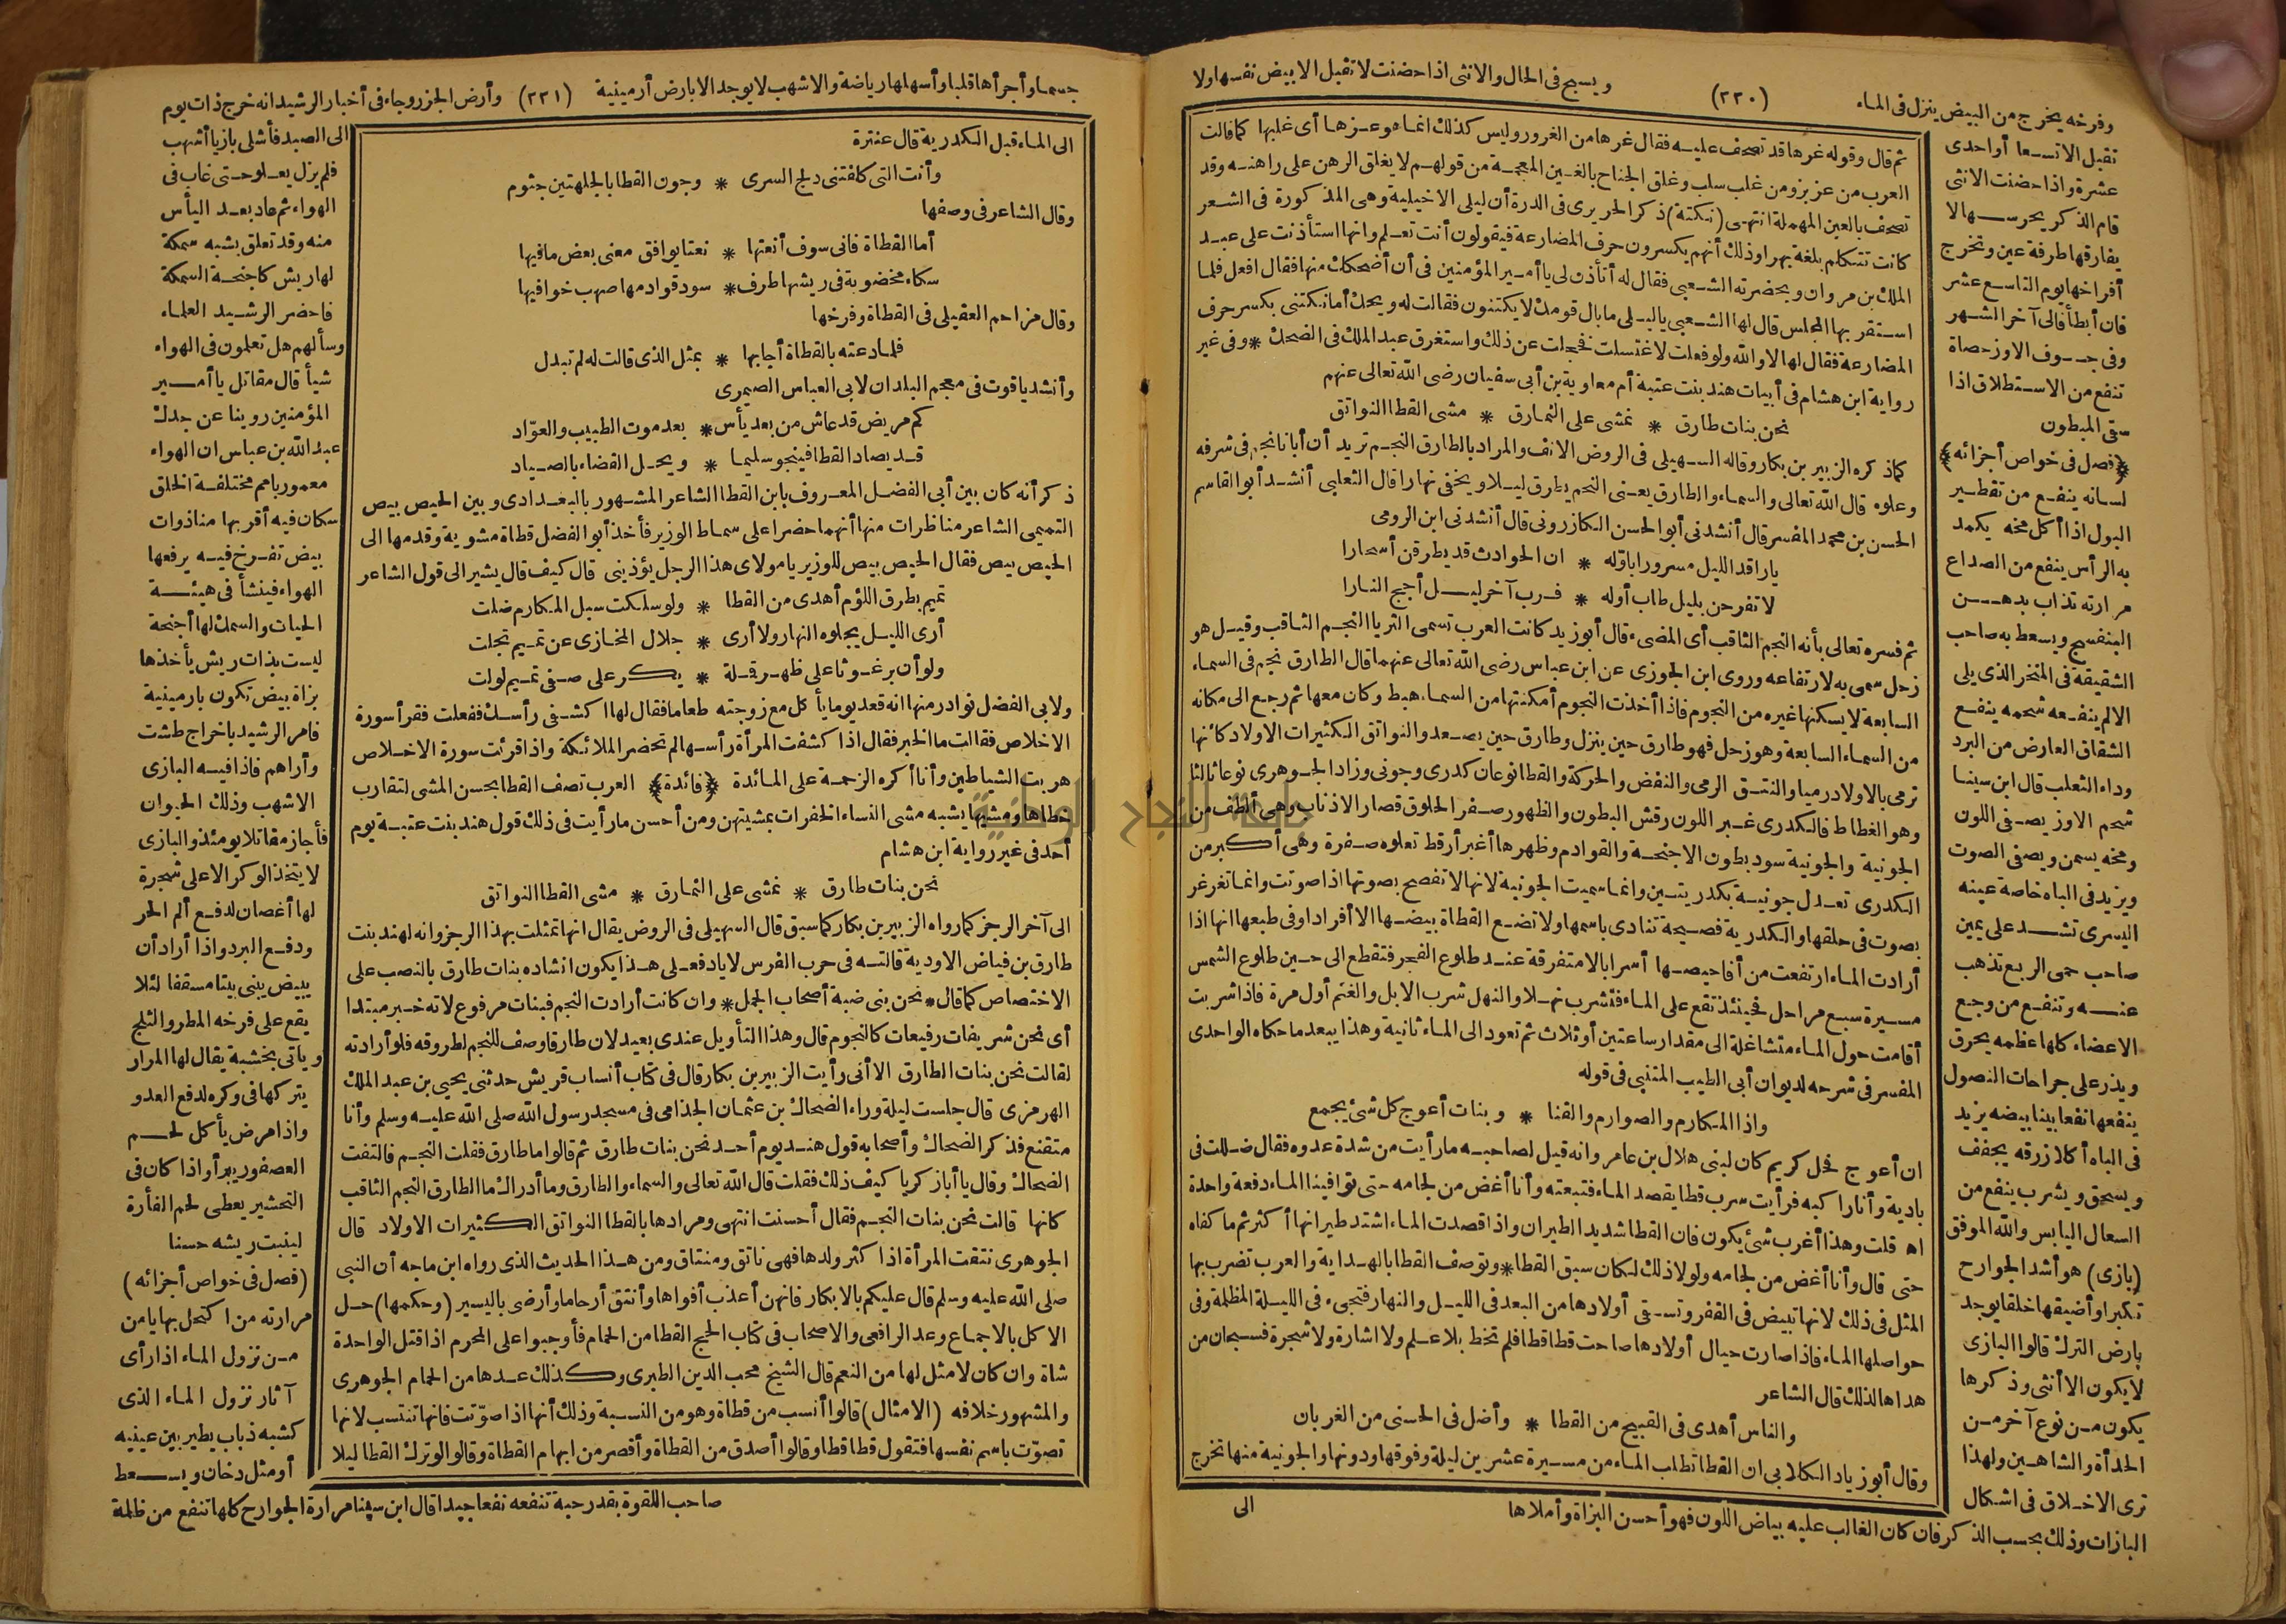 وفرخه يخرج من البيض ينزل فى الماء
(٢٣٠)
ويسبح فى الحال والانثى اذا حضنت لا تقبل الابيض نفسها ولا
تقبل الاتسعا أو احدى
عشرة واذا حضنت الانثى
قام الذكر يحرسها لا
يفارقها طرفة عين وتخرج
أفراخها يوم التاسع عشر
فان أبطأ فالى آخر الشهر
وفى جوف الاوز حصاة
تنفع من الاستطلاق اذا
سقى المبطون
﴿فصل فى خواص أجزائه﴾
لسانه ينفع من تقطير
البول اذا أكل مخه يكمد
به الرأس ينفع من الصداع
مرارته تذاب بدهن
البنفسج ويسعط به صاحب
الشقيقة فى المنخر الذى يلى
الالم ينفعه شحمه ينفع
الشقاق العارض من البرد
وداء الثعلب قال ابن سينا
شحم الاوز يصفى اللون
ومخه يسمن ويصفى الصوت
ويزيد فى الباه خاصة عينه
اليسرى تشد على يمين
صاحب حمى الربع تذهب
عنه وتنفع من وجع
الاعضاء كلها عظمه يحرق
ويذر على جراحات النصول
ينفعها نفعا بينا بيضه يزيد
فى الباه أكلا زرقه يجفف
ويسحق ويشرب ينفع من
السعال اليابس والله الموفق
(بازى) هو أشد الجوارح
تكبرا وأضيقها خلقا يوجد
بارض الترك قالوا البازى
لا يكون الا أنثى وذكرها
يكون من نوع آخر من
الحدأة والشاهين ولهذا
ترى الاختلاف فى اشكال
البازات وذلك بحسب الذكر فان كان الغالب عليه بياض اللون فهو أحسن البزاة وأملاها
ثم قال وقوله غرها قد تصحف عليه فقال غرها من الغرور وليس كذلك انما هو عزها أى غلبها كما قالت
العرب من عز بز ومن غلب سلب وغلق الجناح بالغين المعجمة من قولهم لا يغلق الرهن على راهنه وقد
تصحف بالعين المهملة انتهى (نكتة) ذكر الحريرى فى الدرة أن ليلى الاخيلية وهى المذكورة فى الشعر
كانت تتكلم بلغة بهرا وذلك أنهم يكسرون حرف المضارعة فيقولون أنت تعلم وانها استأذنت على عبد
الملك بن مروان وبحضرته الشعبى فقال له أتأذن لى يا أمير المؤمنين فى أن أضحكك منها فقال افعل فلما
استقر بها المجلس قال لها الشعبى يا ليلى ما بال قومك لا يكتنون فقالت له ويحك أما نكتنى بكسر حرف
المضارعة فقال لها لا والله ولو فعلت لاغتسلت فخجلت عن ذلك واستغرق عبد الملك فى الضحك * وفى غير
رواية ابن هشام فى أبيات هند بنت عتبة أم معاوية بن أبى سفيان رضى الله تعالى عنهم
نحن بنات طارق * نمشى على النمارق * مشى القطا النواتق
كما ذكره الزبير بن بكار وقاله السهيلى فى الروض الانف والمراد بالطارق النجم تريد أن أبانا نجم فى شرفه
وعلوه قال الله تعالى والسماء والطارق يعنى النجم يطرق ليلا ويخفى نهارا قال الثعلبى أنشد أبو القاسم
الحسن بن محمد المفسر قال أنشدنى أبو الحسن الكازرونى قال أنشدنى ابن الرومى
يا راقد الليل مسرورا باوله * ان الحوادث قد يطرقن أسحارا
لا تفرحن بليل طاب أوله * فرب آخر ليل أجج النارا
ثم فسره تعالى بأنه النجم الثاقب أى المضىء قال أبو زيد كانت العرب تسمى الثريا النجم الثاقب وقيل هو
زحل سمى به لارتفاعه وروى ابن الجوزى عن ابن عباس رضى الله تعالى عنهما قال الطارق نجم فى السماء
السابعة لا يسكنها غيره من النجوم فاذا أخذت النجوم أمكنتها من السماء هبط وكان معها ثم رجع الى مكانه
من السماء السابعة وهو زحل فهو طارق حين ينزل وطارق حين يصعد والنواتق الكثيرات الاولاد كانها
ترمى بالاولاد رميا والنتق الرمى والنفض والحركة والقطا نوعان كدرى وجونى وزاد الجوهرى نوعا ثالثا
وهو الغطاط فالكدرى غبر اللون رقش البطون والظهور صفر الحلوق قصار الاذناب وهى ألطف من
الجونية والجونية سود بطون الاجنحة والقوادم وظهرها أغبر أرقط تعلوه صفرة وهى أكبر من
الكدرى تعدل جونية بكدريتين وانما سميت الجونية لانها لا تفصح بصوتها اذا صوتت وانما تغرغر
بصوت فى حلقها والكدرية فصيحة تنادى باسمها ولا تضع القطاة بيضها الا أفرادا وفى طبعها انها اذا
أرادت الماء ارتفعت من أفاحيصها أسرابا لا متفرقة عند طلوع الفجر فتقطع الى حين طلوع الشمس
مسيرة سبع مراحل فحينئذ تقع على الماء فتشرب نهلا والنهل شرب الابل والغنم أول مرة فاذا شربت
أقامت حول الماء متشاغلة الى مقدار ساعتين أو ثلاث ثم تعود الى الماء ثانية وهذا يبعد ما حكاه الواحدى
المفسر فى شرحه لديوان أبى الطيب المتنبى فى قوله
واذا المكارم والصوارم والقنا * وبنات أعوج كل شئ يجمع
ان أعوج فحل كريم كان لبنى هلال بن عامر وانه قيل لصاحبه ما رأيت من شدة عدوه فقال ضللت فى
بادية وأنا راكبه فرأيت سرب قطا يقصد الماء فتبعته وأنا أغض من لجامه حتى توافينا الماء دفعة واحدة
اه قلت وهذا أغرب شئ يكون فان القطا شديد الطيران واذا قصدت الماء اشتد طيرانها أكثر ثم ما كفاه
حتى قال وأنا أغض من لجامه ولولا ذلك لكان سبق القطا * وتوصف القطا بالهداية والعرب تضرب بها
المثل فى ذلك لانها تبيض فى القفر وتسقى أولادها من البعد فى الليل والنهار فتجىء فى الليلة المظلمة وفى
حواصلها الماء فاذا صارت حيال أولادها صاحت قطا قطا فلم تخط بلا علم ولا اشارة ولا شجرة فسبحان من
هداها لذلك قال الشاعر
والناس أهدى فى القبيح من القطا * وأضل فى الحسنى من الغربان
وقال أبو زياد الكلابى ان القطا تطلب الماء من مسيرة عشرين ليلة وفوقها ودونها والجونية منها تخرج
الى
جسما وأجرأها قلبا وأسهلها رياضة والاشهب لا يوجد الا بارض أرمينية
(٢٣١)
وأرض الخزر وجاء فى أخبار الرشيد انه خرج ذات يوم
الى الماء قبل الكدرية قال عنترة
وأنت التى كلفتنى دلج السرى * وجون القطا بالجلهتين جثوم
وقال الشاعر فى وصفها
أما القطاة فانى سوف أنعتها * نعتا يوافق معنى بعض ما فيها
سكاء مخضوبة فى ريشها طرف * سود قوادمها صهب خوافيها
وقال مزاحم العقيلى فى القطاة وفرخها
فلما دعته بالقطاة أجابها * بمثل الذى قالت له لم تبدل
وأنشد ياقوت فى معجم البلدان لابى العباس الصيمرى
كم مريض قد عاش من بعد يأس * بعد موت الطبيب والعوّاد
قد يصاد القطا فينجو سليما * ويحل القضاء بالصياد
ذكر أنه كان بين أبى الفضل المعروف بابن القطا الشاعر المشهور بالبغدادى وبين الحيص بيص
التميمى الشاعر مناظرات منها أنهما حضرا على سماط الوزير فأخذ أبو الفضل قطاة مشوية وقدمها الى
الحيص بيص فقال الحيص بيص للوزير يا مولاى هذا الرجل يؤذينى قال كيف قال يشير الى قول الشاعر
تميم بطرق اللؤم أهدى من القطا * ولو سلكت سبل المكارم ضلت
أرى الليل يجلوه النهار ولا أرى * جلال المخازى عن تميم تجلت
ولو أن برغوثا على ظهر قملة * يكر على صفى تميم لولت
ولابى الفضل نوادر منها انه قعد يوما يأكل مع زوجته طعاما فقال لها اكشفى رأسك ففعلت فقرأ سورة
الاخلاص فقالت ما الخبر فقال اذا كشفت المرأة رأسها لم تحضر الملائكة واذا قرئت سورة الاخلاص
هربت الشياطين وأنا أكره الزحمة على المائدة ﴿فائدة﴾ العرب تصف القطا بحسن المشى لتقارب
خطاها ومشيها يشبه مشى النساء الخفرات بمشيتهن ومن أحسن ما رأيت فى ذلك قول هند بنت عتبة يوم
أحد فى غير رواية ابن هشام
نحن بنات طارق * نمشى على النمارق * مشى القطا النواتق
الى آخر الرجز كما رواه الزبير بن بكار كما سبق قال السهيلى فى الروض يقال انها تمثلت بهذا الرجز وانه لهند بنت
طارق بن فياض الاودية قالته فى حرب الفرس لاياد فعلى هذا يكون انشاده بنات طارق بالنصب على
الاختصاص كما قال * نحن بنى ضبة أصحاب الجمل * وان كانت أرادت النجم فبنات مرفوع لانه خبر مبتدا
أى نحن شريفات رفيعات كالنجوم قال وهذا التأويل عندى بعيد لان طارقا وصف للنجم لطروقه فلو أرادته
لقالت نحن بنات الطارق الا أنى رأيت الزبير بن بكار قال فى كتاب أنساب قريش حدثنى يحيى بن عبد الملك
الهرمزى قال جلست ليلة وراء الضحاك بن عثمان الجذامى فى مسجد رسول الله صلى الله عليه وسلم وأنا
متقنع فذكر الضحاك وأصحابه قول هند يوم أحد نحن بنات طارق ثم قالوا ما طارق فقلت النجم فالتفت
الضحاك وقال يا أبا زكريا كيف ذلك فقلت قال الله تعالى والسماء والطارق وما أدراك ما الطارق النجم الثاقب
كانها قالت نحن بنات النجم فقال أحسنت انتهى ومرادها بالقطا النواتق الكثيرات الاولاد قال
الجوهرى نتقت المرأة اذا كثر ولدها فهى ناتق ومنتاق ومن هذا الحديث الذى رواه ابن ماجه أن النبى
صلى الله عليه وسلم قال عليكم بالابكار فانهن أعذب أفواها وأنتق أرحاما وأرضى باليسير (وحكمها) حل
الاكل بالاجماع وعد الرافعى والاصحاب فى كتاب الحج القطا من الحمام فأوجبوا على المحرم اذا قتل الواحدة
شاة وان كان لا مثل لها من النعم قال الشيخ محب الدين الطبرى وكذلك عدها من الحمام الجوهرى
والمشهور خلافه (الامثال) قالوا أنسب من قطاة وهو من النسبة وذلك أنها اذا صوّتت فانها تنتسب لانها
تصوّت باسم نفسها فتقول قطا قطا وقالوا أصدق من القطاة وأقصر من ابهام القطاة وقالوا لو ترك القطا ليلا
الى الصيد فأشلى بازيا أشهب
فلم يزل يعلو حتى غاب فى
الهواء ثم عاد بعد اليأس
منه وقد تعلق بشبه سمكة
لها ريش كاجنحة السمكة
فاحضر الرشيد العلماء
وسألهم هل تعلمون فى الهواء
شيأ قال مقاتل يا أمير
المؤمنين روينا عن جدك
عبد الله بن عباس ان الهواء
معمور بامم مختلفة الخلق
سكان فيه أقربها منا ذوات
بيض تفرخ فيه يرفعها
الهواء فينشأ فى هيئة
الحيات والسمك لها أجنحة
ليست بذات ريش يأخذها
بزاة بيض تكون بارمينية
فامر الرشيد باخراج طشت
وأراهم فاذا فيه البازى
الاشهب وذلك الحيوان
فأجاز مقاتلا يومئذ والبازى
لا يتخذ الوكر الا على شجرة
لها أغصان لدفع ألم الحر
ودفع البرد واذا أراد أن
يبيض يبنى بيتا مسقفا لئلا
يقع على فرخه المطر والثلج
ويأتى بخشبة يقال لها المرار
يتركها فى وكره لدفع العدو
واذا مرض يأكل لحم
العصفور يبرأ واذا كان فى
التحشير يعطى لحم الفأرة
لينبت ريشه حسنا
(فصل فى خواص أجزائه)
مرارته من اكتحل بها يامن
من نزول الماء اذا رأى
آثار نزول الماء الذى
كشبه ذباب يطير بين عينيه
أو مثل دخان ويسعط
صاحب اللقوة بقدر حبة تنفعه نفعا جيدا قال ابن سينا مرارة الجوارح كلها تنفع من ظلمة
جامعة النجاح الوطنية